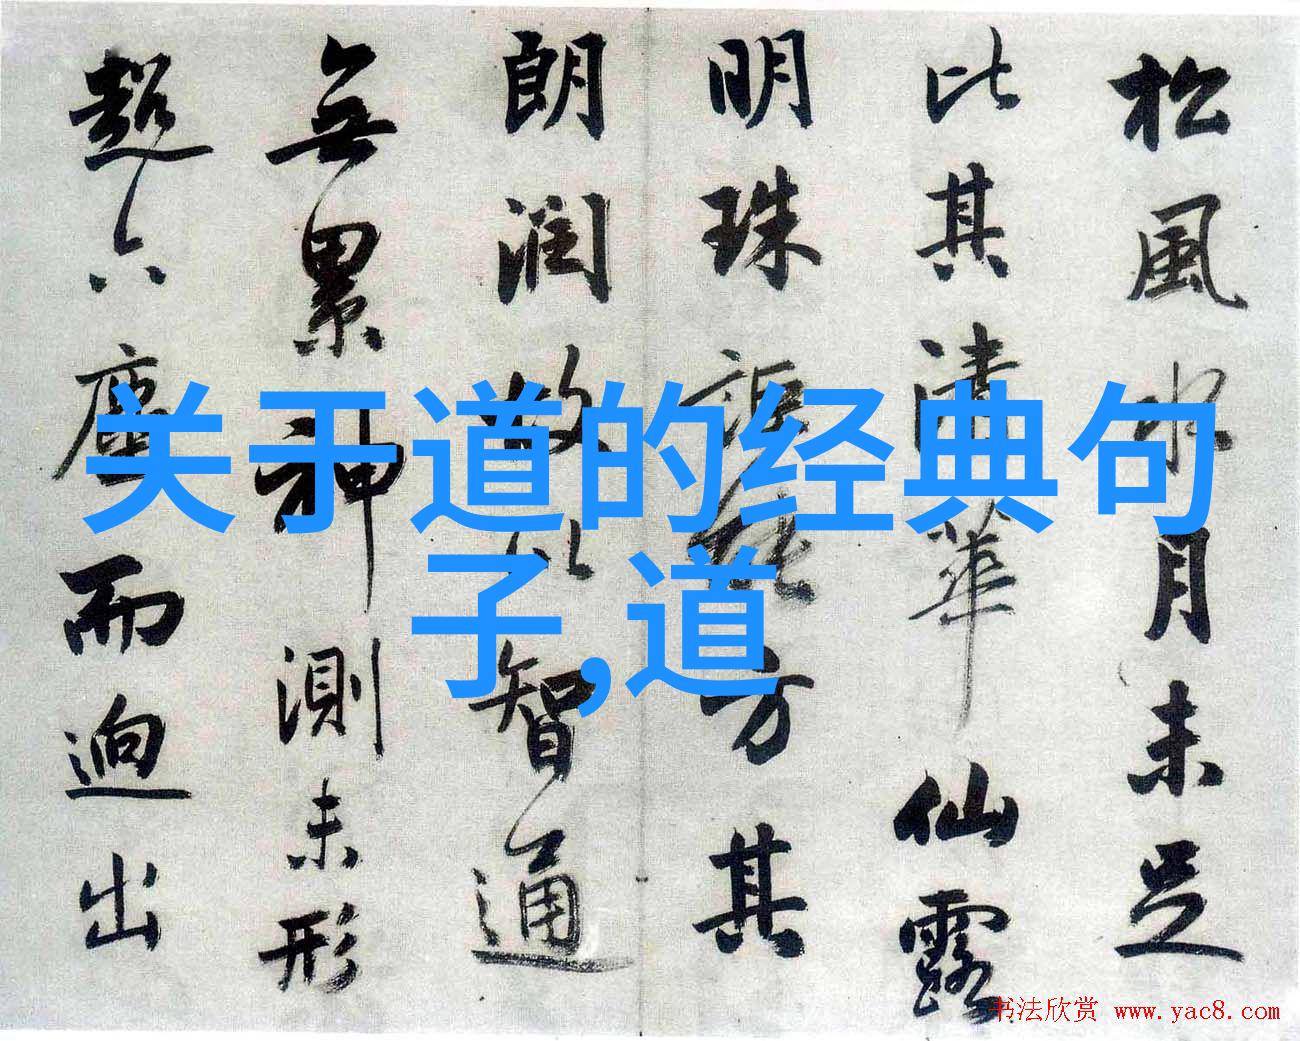 关于道的经典句
子,道
松風水月未足
比其清華仙露
明珠詎能方其
朗潤故以智通
無累神測未形
超六塵而迥出
书法欣赏 www.yac8.com